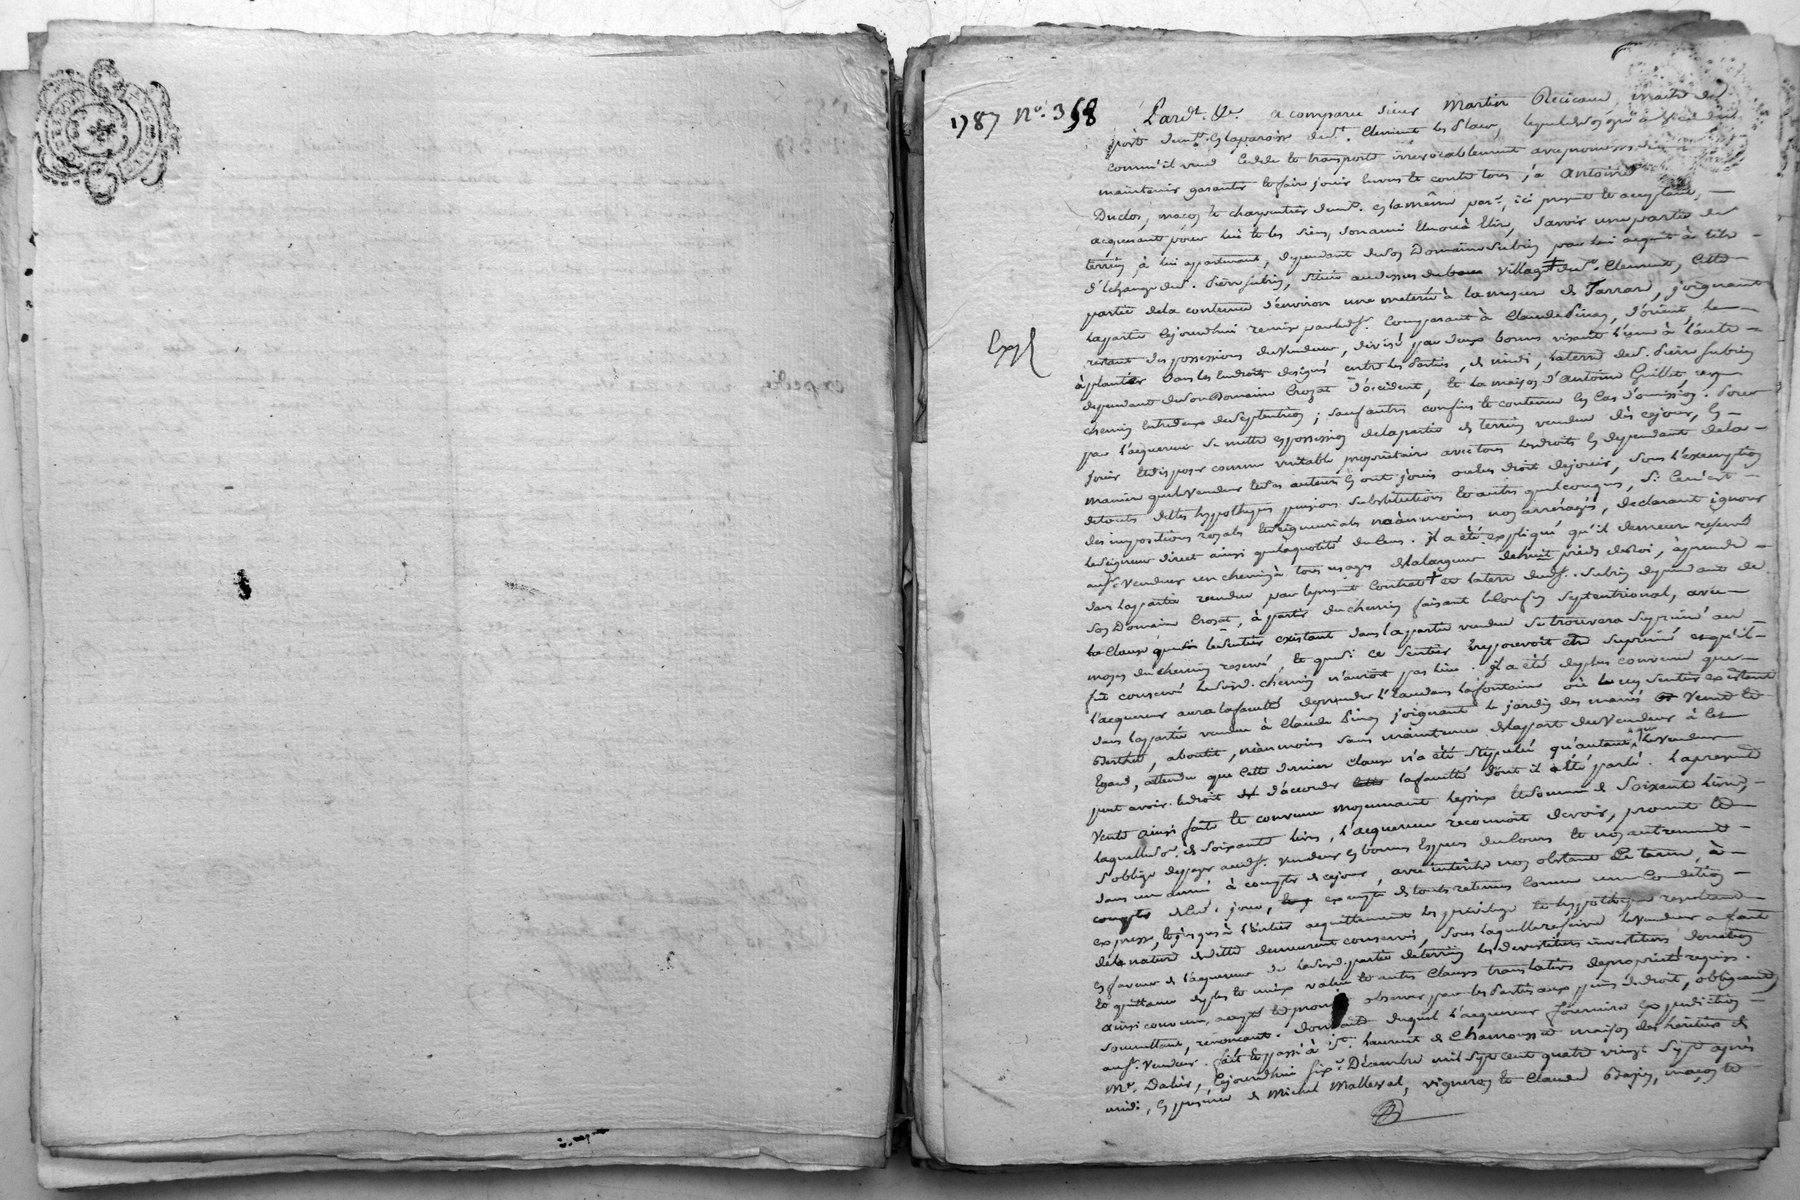 1787 N.º 358
Pard.t &c. a comparu sieur Martin
de St. Clement les Places
comme il vend cede et transporte irrevocablement avec promesse de
maintenir garantir et faire jouir envers et contre tous, à Antoine
Duclos, maçon et charpentier en la même par.e, ici present et acceptant,
acquerant pour lui et les siens, son ami elu ou à elire, savoir une partie de
terrein à lui apartenant, dependant de son Domaine Subrin par lui acquit à titre
d'echange de s.r Pierre Subrin, située au dessus du village de St. Clement, cette
partie de la contenue d'environ une meterée à la mesure de Tarrare, joignant
la partie cejourd'hui remise par led.s. Comparant à Claude Pinay, d'orient, le
restant des possessions du Vendeur, divisé par deux bornes visant l'une à l'autre
à planter dans les endroits designés entre les Parties, de midi, la terre de s. Pierre Subrin
dependant de son Domaine Crozat d'occident, et la maison d'Antoine Guillet, un
chemin entredeux de septentrion; sauf autres confins et contenue en cas d'omission. Pour
par l'acquereur se mettre en possession de la partie de terrein vendue dès ce jour, en
jouir et disposer comme veritable proprietaire avec tous les droits en dependant de la
maniere que le Vendeur et ses auteurs en ont joui ou eu droit de jouir, sous l'exemption
de toutes dettes hypotheques pensions substitutions et autres quelconques, si ce n'est
des impositions royales et seigneuriales néanmoins non arréragés, declarant ignorer
le seigneur direct ainsi que la quotité du cens. il a été expliqué qu'il demeure reservé
au s.r Vendeur un chemin à tous usages de la largeur de huit pieds de Roi, à prendre
dans la partie vendue par le present Contrat et la terre de s. Subrin dependant de
son Domaine Crozat, à partir du chemin faisant le Confin septentrional, avec
la Clause que le sentier existant dans la partie vendue se trouvera suprimé au
moyen du chemin reservé, et que si ce sentier ne pouvoit être suprimé et qu'il
fut conservé le susd. chemin n'auroit pas lieu. il a été de plus convenu que
l'acquereur aura la faculté de prendre l'eau dans la fontaine où un sentier existant
dans la partie vendue à Claude Pinay joignant le jardin des mariés Venet et
Berthet, aboutit, néanmoins sans maintenue de la part du Vendeur à cet
Egard, attendu que cette derniere clause n'a été stipulée qu'autant que le Vendeur
peut avoir le droit d'accorder la faculté dont il a été parlé. La presente
Vente ainsi faite et convenue moyennant le prix et somme de soixante livres
laquelle so.e de soixante livres, l'acquereur reconnoit devoir, promet et
s'oblige de payer aud.s. Vendeur en bonnes Especes du Cours et non autrement
dans un année à compter de ce jour, avec interêts non obstant le terme, à
compter de ced. jour, exempts de toutes retenues comme une Condition
expresse, et jusqu'à l'entier acquittement les privilege et hypotheque resultant
de la nature de dette demeurent conservés, sous laquelle reserve le Vendeur a fait
en faveur de l'acquereur de la susd. partie de terrein les devestitures investitures donation
et quittance de plus et mieux value et autres Clauses translatives de proprieté requises.
ainsi convenu, accepté et promis observer par les Parties aux peines de droit, obligeant,
soumettant, renonçant. dont acte duquel l'acquereur fournira expedition
au s. Vendeur. fait et passé à St. Laurent de Chamousset maison des heritiers de
M.e Dalin, cejourd'hui six.e Décembre mil sept cent quatre vingt sept après
midi, en presence de Michel Malleval, vigneron et Claude maçon et
Exp.